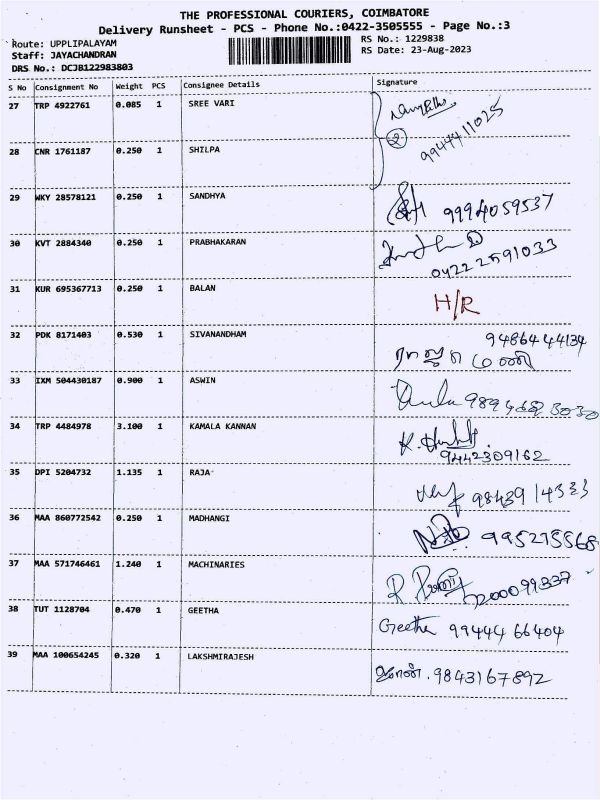 THE PROFESSIONAL COURIERS, COIMBATORE
Delivery Runsheet - PCS - Phone No.:0422-3505555 - Page No.:3
Route: UPPLIPALAYAM
RS No.: 1229838
Staff: JAYACHANDRAN
RS Date: 23-Aug-2023
DRS No.: DCJB122983803
S No Consignment No Weight PCS Consignee Details Signature
27 TRP 4922761 0.085 1 SREE VARI
9944411025
28 CNR 1761187 0.250 1 SHILPA
29 WKY 28578121 0.250 1 SANDHYA 9994059537
30 KVT 2884340 0.250 1 PRABHAKARAN
0422 2591033
31 KUR 695367713 0.250 1 BALAN H/R
32 PDK 8171403 0.530 1 SIVANANDHAM 9486444134
33 IXM 504430187 0.900 1 ASWIN
34 TRP 4484978 3.100 1 KAMALA KANNAN
9442309162
35 DPI 5204732 1.135 1 RAJA 9843914333
36 MAA 860772542 0.250 1 MADHANGI 995275568
37 MAA 571746461 1.240 1 MACHINARIES
38 TUT 1128704 0.470 1 GEETHA Geetha 99444 66404
39 MAA 100654245 0.320 1 LAKSHMIRAJESH 9843167892